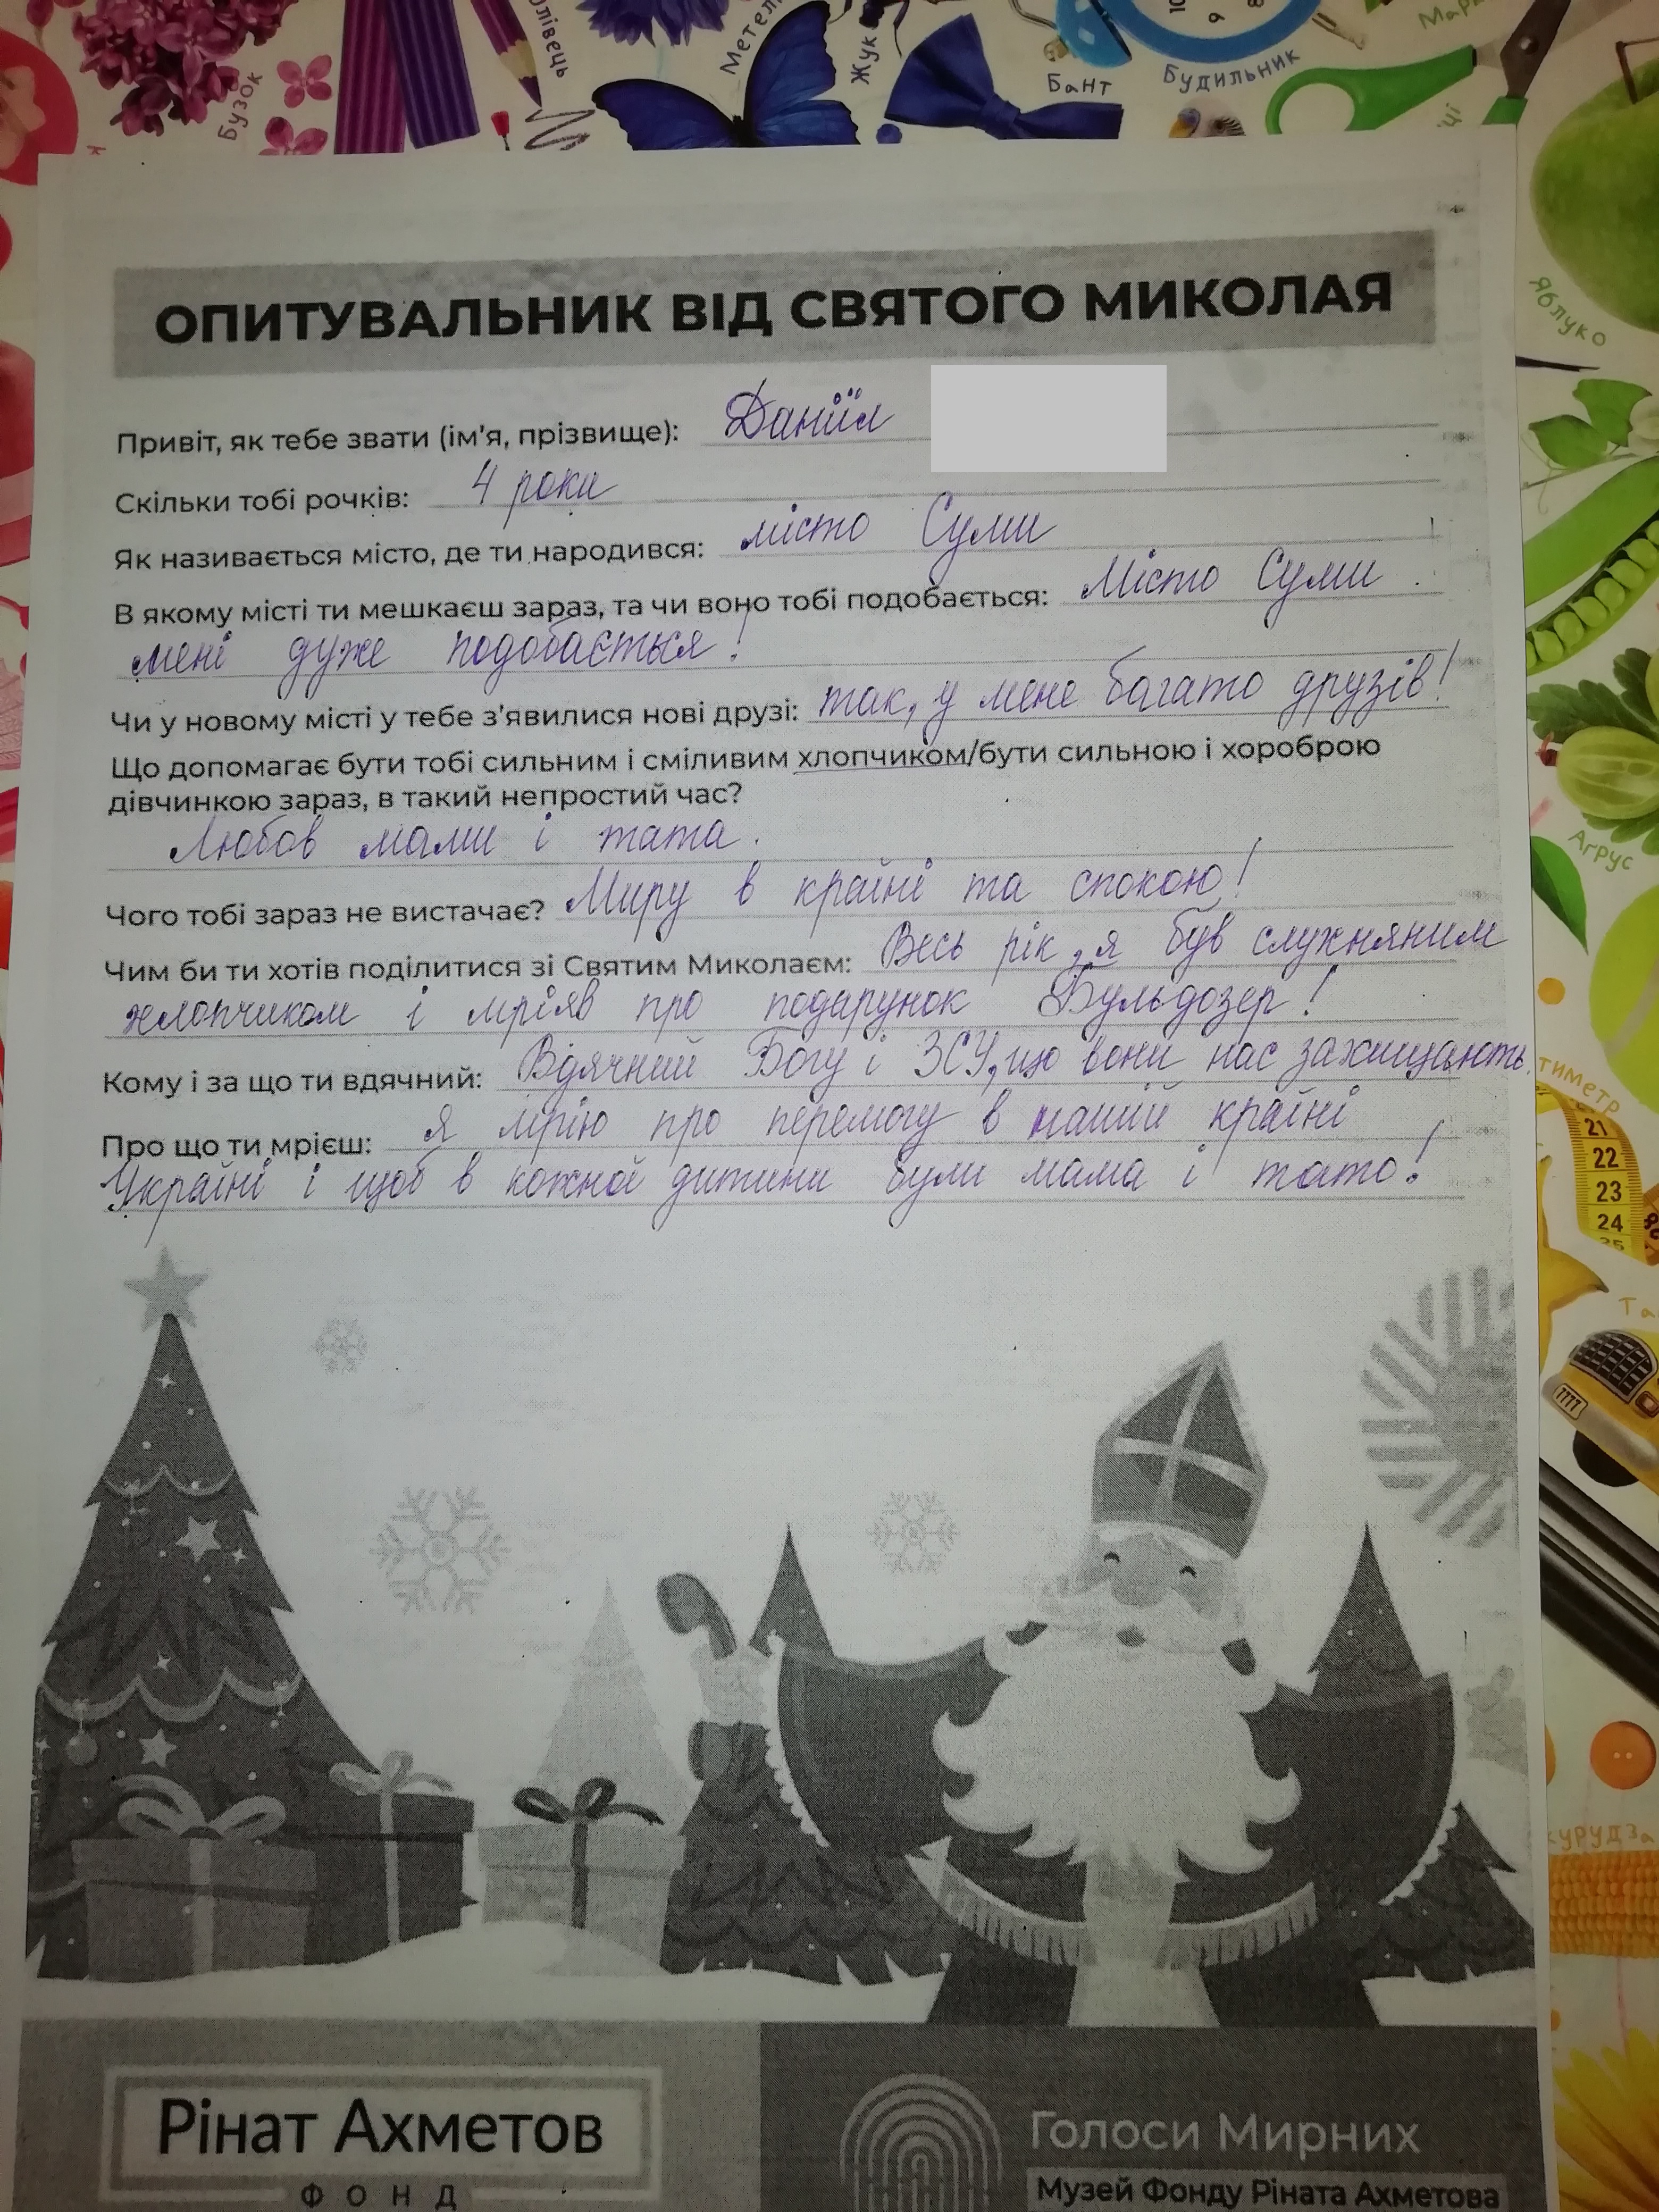 Бузок
Метел
Жук
Бант
Будильник
Яблуко
Агрус
ОПИТУВАЛЬНИК ВІД СВЯТОГО МИКОЛАЯ
Привіт, як тебе звати (ім'я, прізвище): Даниїл
Скільки тобі рочків: 4 роки
Як називається місто, де ти народився: місто Суми
В якому місті ти мешкаєш зараз, та чи воно тобі подобається: Місто Суми.
мені дуже подобається!
Чи у новому місті у тебе з'явилися нові друзі: так, у мене багато друзів!
Що допомагає бути тобі сильним і сміливим хлопчиком/бути сильною і хороброю
дівчинкою зараз, в такий непростий час?
Любов мами і тата.
Чого тобі зараз не вистачає? Миру в країні та спокою!
Чим би ти хотів поділитися зі Святим Миколаєм: Весь рік, я був слухняним
хлопчиком і мріяв про подарунок Бульдозер!
Кому і за що ти вдячний: Вдячний Богу і ЗСУ, що вони нас захищають.
Про що ти мрієш: я мрію про перемогу в нашій країні
Україні і щоб в кожної дитини були мама і тато!
тиметр
21
22
23
24
25
7777
курудза
Рінат Ахметов
ФОНД
Голоси Мирних
Музей Фонду Ріната Ахметова